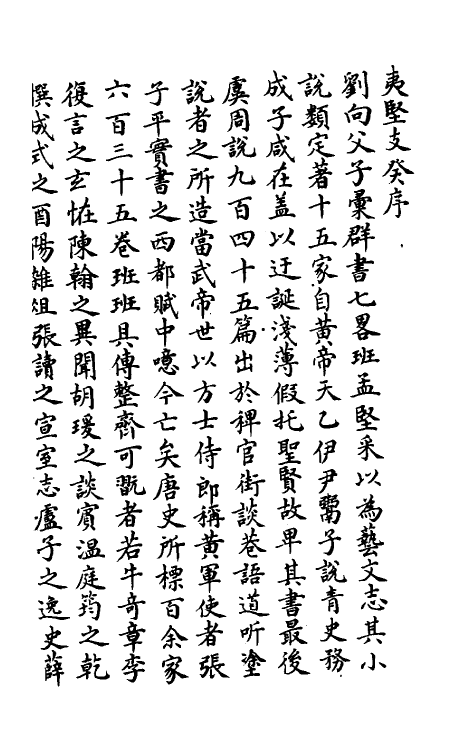 夷堅支癸序
劉向父子彙群書七畧班孟堅采以為藝文志其小
說類定著十五家自黃帝天乙伊尹鬻子說青史務
成子咸在盖以迂誕淺薄假托聖賢故卑其書最後
虞周說九百四十五篇出於稗官街談巷語道听塗
說者之所造當武帝世以方士侍郎稱黃軍使者張
子平實書之西都賦中噫今亡矣唐史所標百余家
六百三十五卷班班具傳整齊可翫者若牛奇章李
復言之玄恠陳翰之異聞胡璩之談賓温庭筠之乾
𦠆成式之酉陽雜俎張讀之宣室志盧子之逸史薛